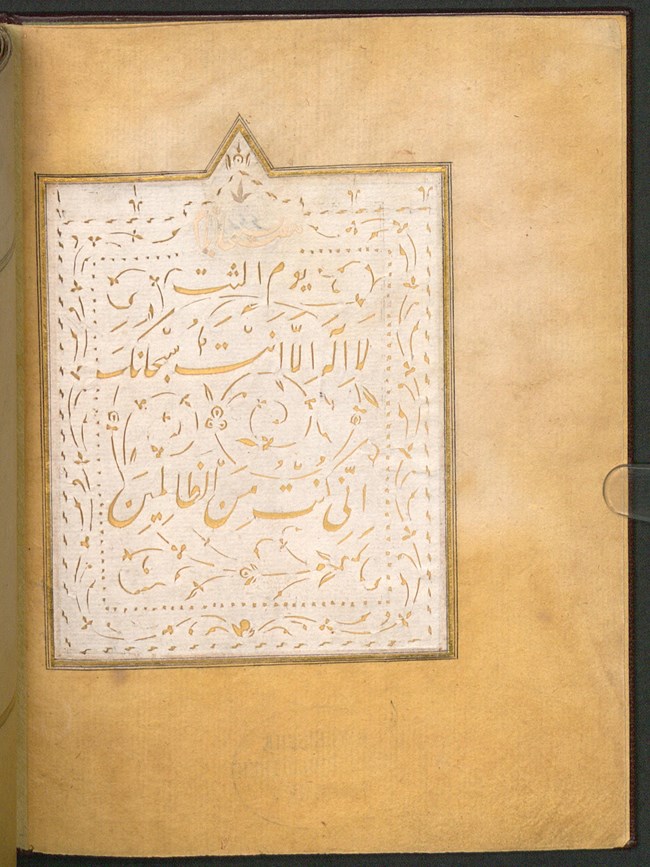 يوم الثت
لَا اِلٰهَ اِلَّا اَنْتَ سُبْحَانَكَ
اِنِّي كُنْتُ مِنَ الظَّالِمِينَ